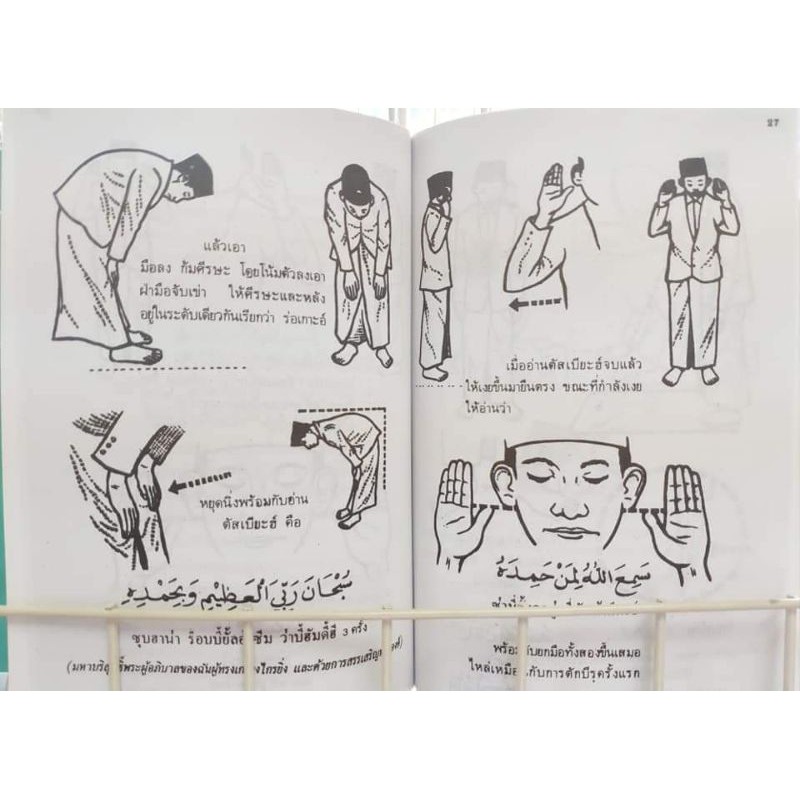 แล้วเอา
มือลง ก้มศีรษะ โดยโน้มตัวลงเอา
ฝ่ามือจับเข่า ให้ศีรษะและหลัง
อยู่ในระดับเดียวกันเรียกว่า ร่อเกาะอ์
หยุดนิ่งพร้อมกับอ่าน
ตัสเบียะฮ์ คือ
سُبْحَانَ رَبِّيَ الْعَظِيْمِ وَبِحَمْدِهِ
ซุบฮาน่า ร็อบบี้ยั้ลอ ซีม ว่าบี้ฮัมดี้ฮี 3 ครั้ง
(มหาบริสุ ธิ์พระผู้อภิบาลของฉันผู้ทรงเก งไกรยิ่ง และด้วยการสรรเสริญ
27
เมื่ออ่านตัสเบียะฮ์จบแล้ว
ให้เงยขึ้นมายืนตรง ขณะที่กำลังเงย
ให้อ่านว่า
سَمِعَ اللهُ لِمَنْ حَمِدَهُ
พร้อ กับยกมือทั้งสองขึ้นเสมอ
ไหล่เหมือ กับการตักบีรุครั้งแรก